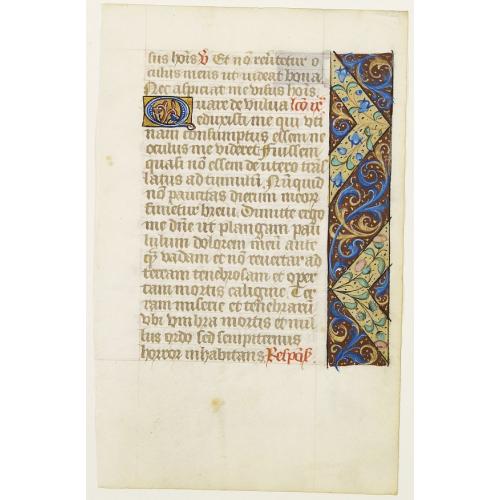 sus hois ꝟ Et no reuertetur o
culus meus ut uideat bona
Nec aspiciat me visus hois.
Quare de vulua lco ix
eduxisti me qui vti
nam consumptus essem ne
oculus me videret Fuissem
quasi nō essem de utero trās
latus ad tumulū. Nūquid
nō paucitas dierum meor
finietur breui. Dimitte ergo
me dn̄e ut plangam pau
lulum dolorem meū ante
q̄ vadam et nō reuertar ad
terram tenebrosam et oper
tam mortis caligine. Ter
ram miserie et tenebrarū
vbi vmbra mortis et nul
lus ordo sed sempiternus
horror inhabitans Respōs.